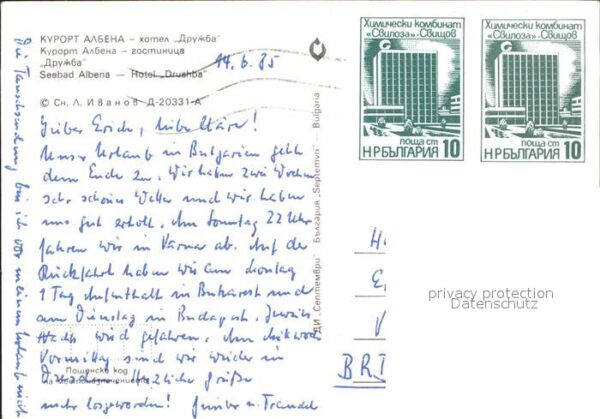 КУРОРТ АЛБЕНА – хотел „Дружба“
Курорт Албена – гостиница
„Дружба“
Seebad Albena — Hotel „Drushba“
© Сн. Л. Иванов Д-20331-А
14.6.85
Lieber Erich, liebe Kläre!
Unser Urlaub in Bulgarien geht
dem Ende zu. Wir haben zwei Wochen
sehr schönes Wetter und wir haben
uns gut erholt. Am Sonntag 22 Uhr
fahren wir in Varna ab. Auf der
Rückfahrt haben wir am Montag
1 Tag Aufenthalt in Bukarest und
am Dienstag in Budapest. Jeweils
Nachts wird gefahren. Am Mittwoch
Vormittag sind wir wieder in
Dresden. Herzliche Grüße
Günter u. Traudel
Die Tauschsendung bin ich vor meinem Urlaub nicht
mehr losgeworden!
Пощенски код
на местоназначението
ДИ „Септември“ България „Septemvri“ Bulgaria
Химически комбинат
«Свилоза»-Свищов
поща ст
НРБЪЛГАРИЯ 10
Химически комбинат
«Свилоза»-Свищов
поща ст
НРБЪЛГАРИЯ 10
H
E
V
BRD
privacy protection
Datenschutz